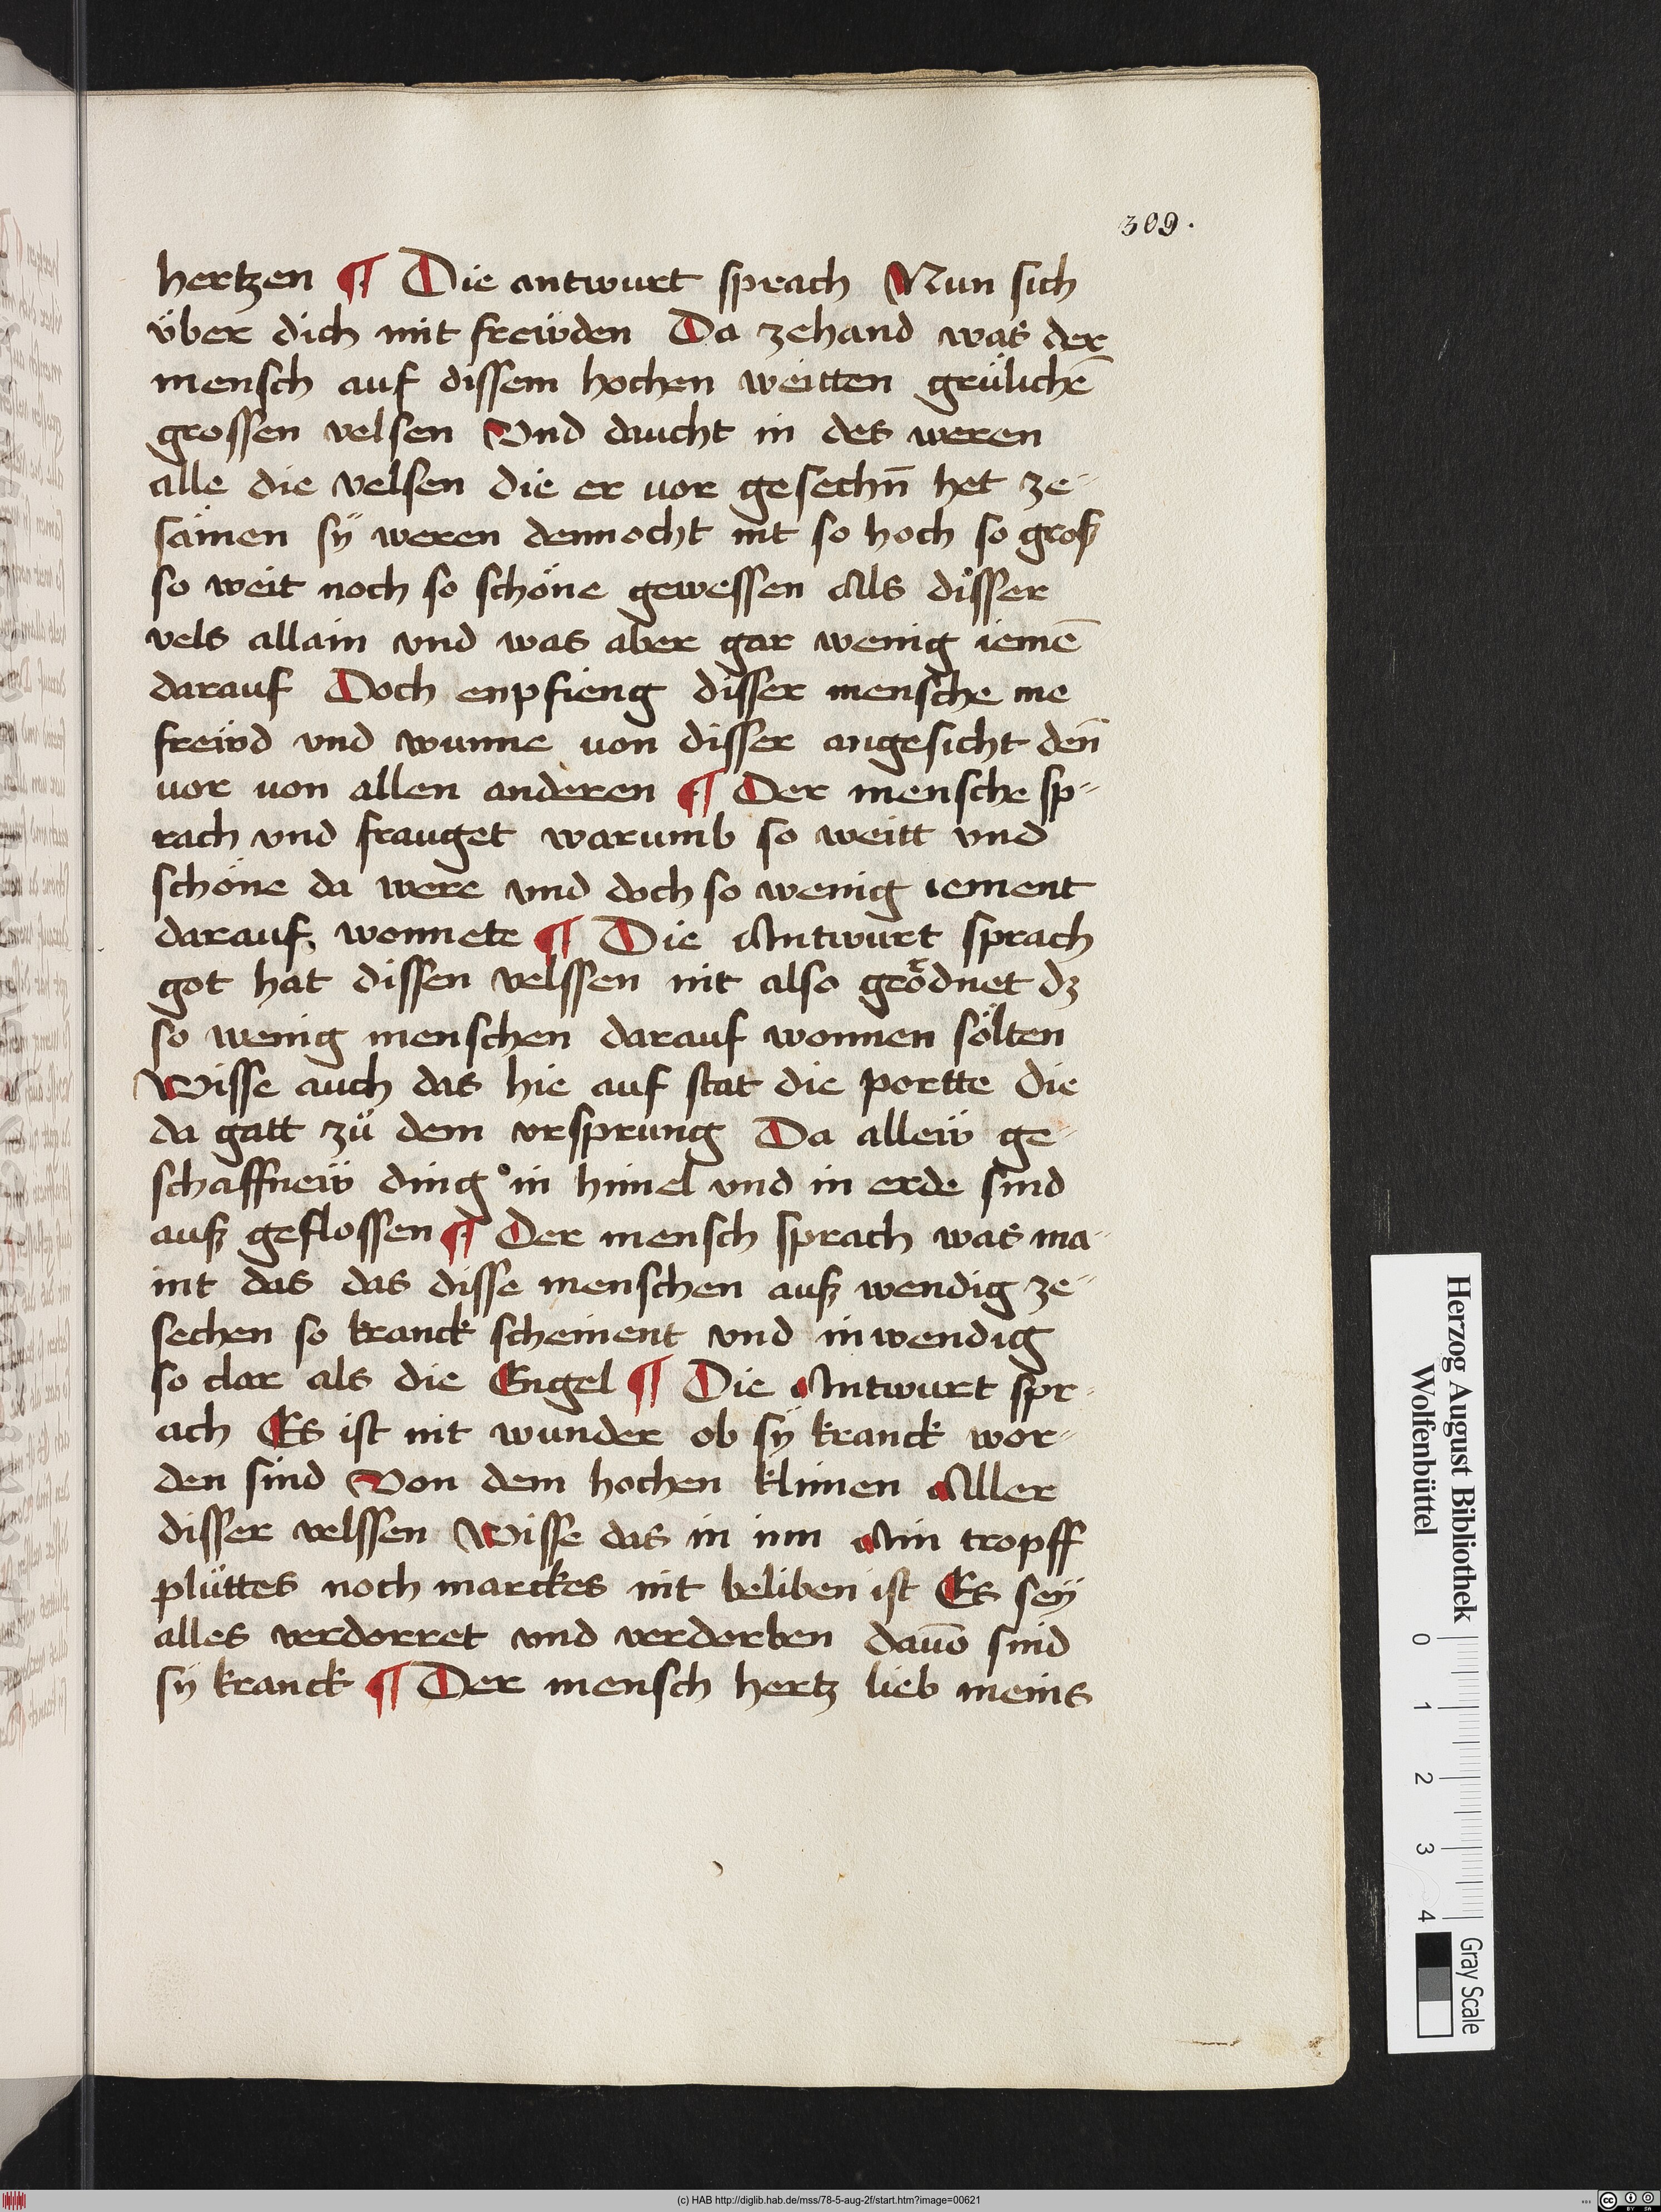 309.
hertzen ¶ Die antwurt sprach Nun sich
v̈ber dich mit freẅden Da zehand was der
mensch auf dissem hochen weitten grülichē
grossen velsen Vnd daucht in des weren
alle die velsen die er vor gesechn̄ het ze-
sämen sÿ weren dennocht nit so hoch so groß
so weit noch so schöne gewessen Als disser
vels allain vnd was aber gar wenig iemē
darauf Doch enpfieng disser mensche me
freẅd vnd wunne von disser angesicht den̄
vor von allen anderen ¶ Der mensche sp-
rach vnd frauget warumb so weitt vnd
schöne da were vnd doch so wenig iement
darauf wonnete ¶ Die Antwurt sprach
got hat dissen velssen nit also geödnet dz
so wenig menschen darauf wonnen sölten
Wisse auch das hie auf stat die portte die
da gatt zü dem vrsprung Da alleẅ ge-
schaffneẅ ding in himel vnd in erde sind
auß geflossen ¶ Der mensch sprach was ma-
int das das disse menschen auß wendig ze-
sechen so kranck scheinent vnd inwendig
so clar als die Engel ¶ Die Antwurt spr-
ach Es ist nit wunder ob sÿ kranck wor-
den sind Von dem hochen klimen Aller
disser velssen Wisse das in inn Ain tropff
plüttes noch marckes nit beliben ist Es seÿ
alles verdorret vnd verdorben dauō sind
sÿ kranck ¶ Der mensch hertz lieb meins
Herzog August Bibliothek
Wolfenbüttel
0 1 2 3 4
Gray Scale
(c) HAB http://diglib.hab.de/mss/78-5-aug-2f/start.htm?image=00621